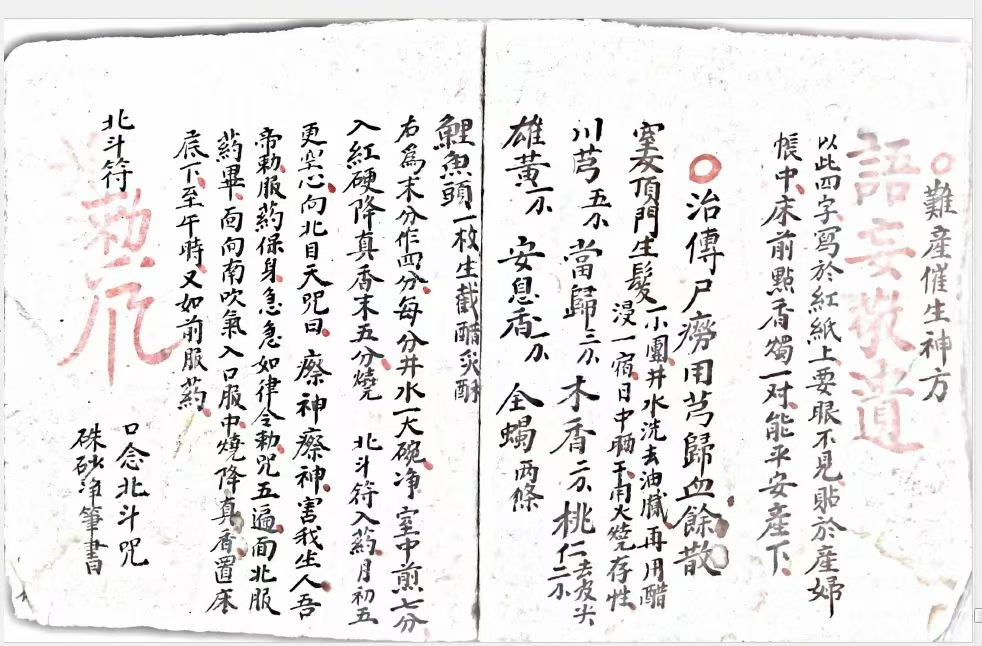 難產催生神方
語妄敬遺
以此四字寫於紅紙上要眼不見貼於產婦
帳中床前點香燭一对能平安產下
治傳尸癆用芎歸血餘散
室女頂門生髮一小團井水洗去油膩再用醋
浸一宿日中晒干南火燒存性
川芎五尒 當歸三尒 木香二尒 桃仁去皮尖二尒
雄黄一尒 安息香一尒 全蝎两條
鯉魚頭一枚生截醋炙酥
右為末分作四分每分井水一大碗净室中煎七分
入紅硬降真香末五分燒 北斗符入药月初五
更空心向北目天咒曰瘵神瘵神害我生人吾
帝勅服药保身急急如律令勅咒五遍面北服
药畢面向南吹氣入口服中燒降真香置床
底下至午時又如前服药
北斗符
勅
口念北斗咒
硃砂净筆書